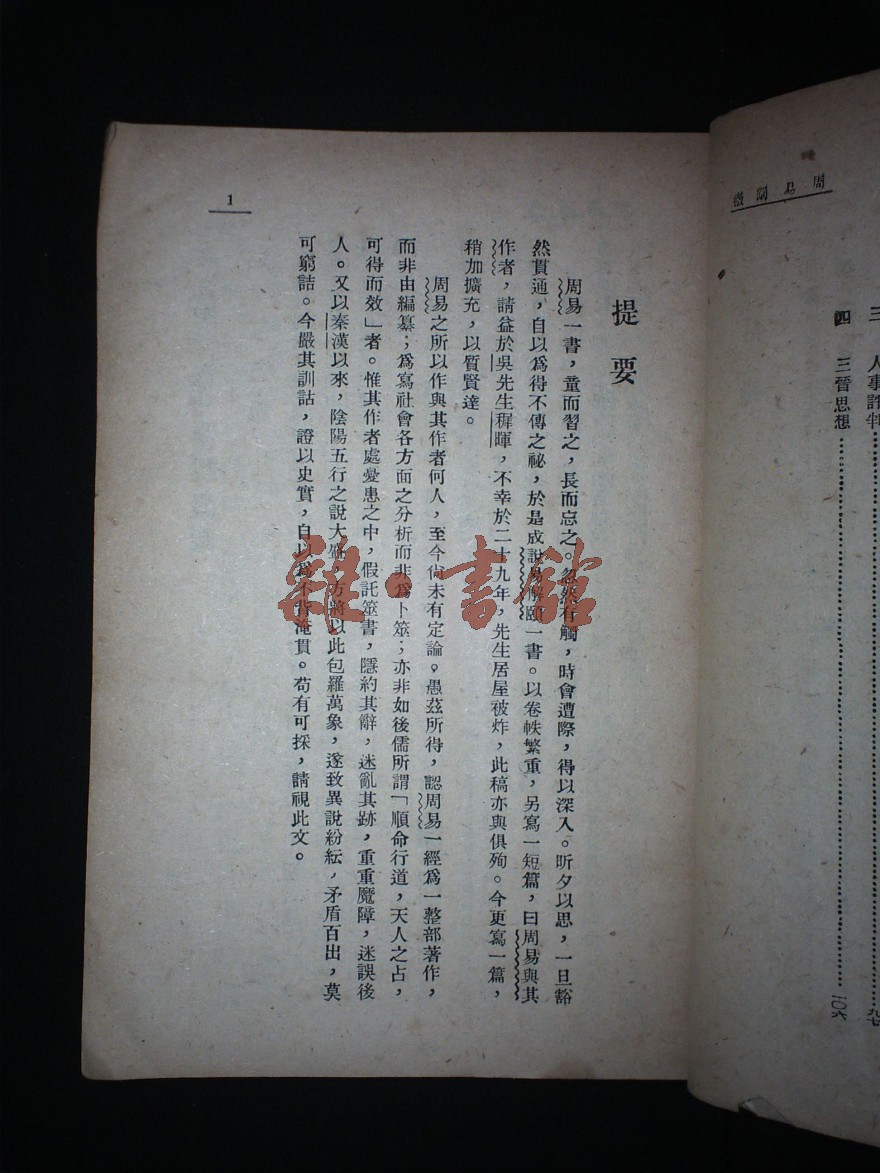 周易闡微
三 人事評判……九七
四 三晉思想……一〇六
提要
周易一書，童而習之，長而忘之。忽然有觸，時會遭際，得以深入。昕夕以思，一旦豁
然貫通，自以爲得不傳之祕，於是成說易解頤一書。以卷帙繁重，另寫一短篇，曰周易與其
作者，請益於吳先生稺暉，不幸於二十九年，先生居屋被炸，此稿亦與俱殉。今更寫一篇，
稍加擴充，以質賢達。
周易之所以作與其作者何人，至今尙未有定論。愚茲所得，認周易一經爲一整部著作，
而非由編纂；爲寫社會各方面之分析而非爲卜筮；亦非如後儒所謂「順命行道，天人之占，
可得而效」者。惟其作者處憂患之中，假託筮書，隱約其辭，迷亂其跡，重重魔障，迷誤後
人。又以秦漢以來，陰陽五行之說大盛，方將以此包羅萬象，遂致異說紛紜，矛盾百出，莫
可窮詰。今嚴其訓詁，證以史實，自以爲不背淹貫。苟有可採，請視此文。
1
雜·書館